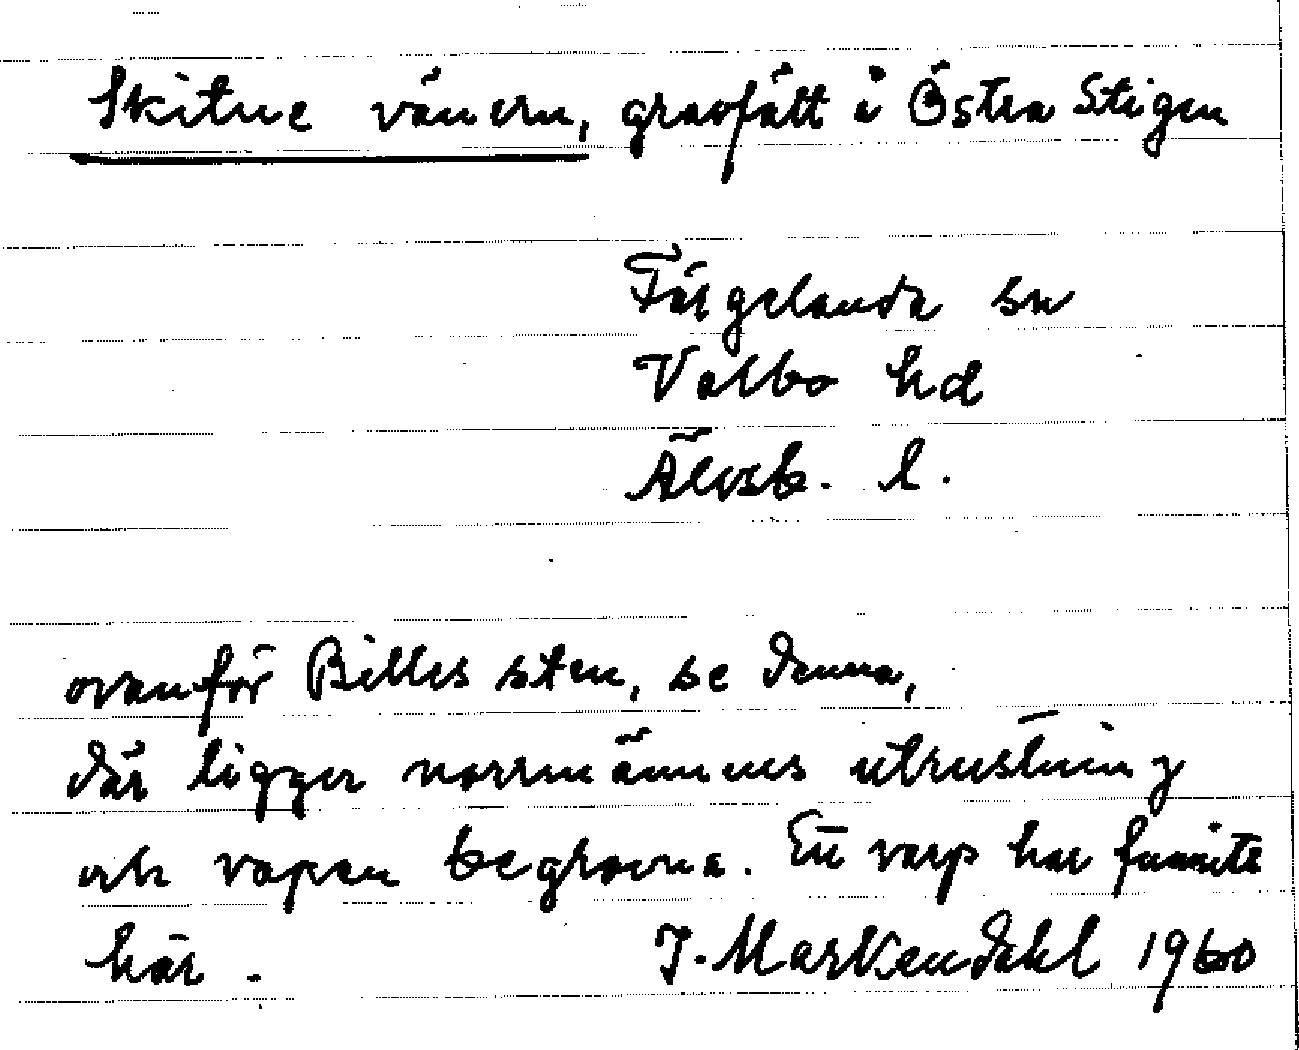 Skitne vänern, gravfält i Östra Stigen
Färgelanda sn
Valbo hd
Älvsb. l.
ovanför Billes sten, se denna,
där ligger norrmännens utrustning
och vapen begravna. Ett varp har funnits
här.
J. Markendahl 1960